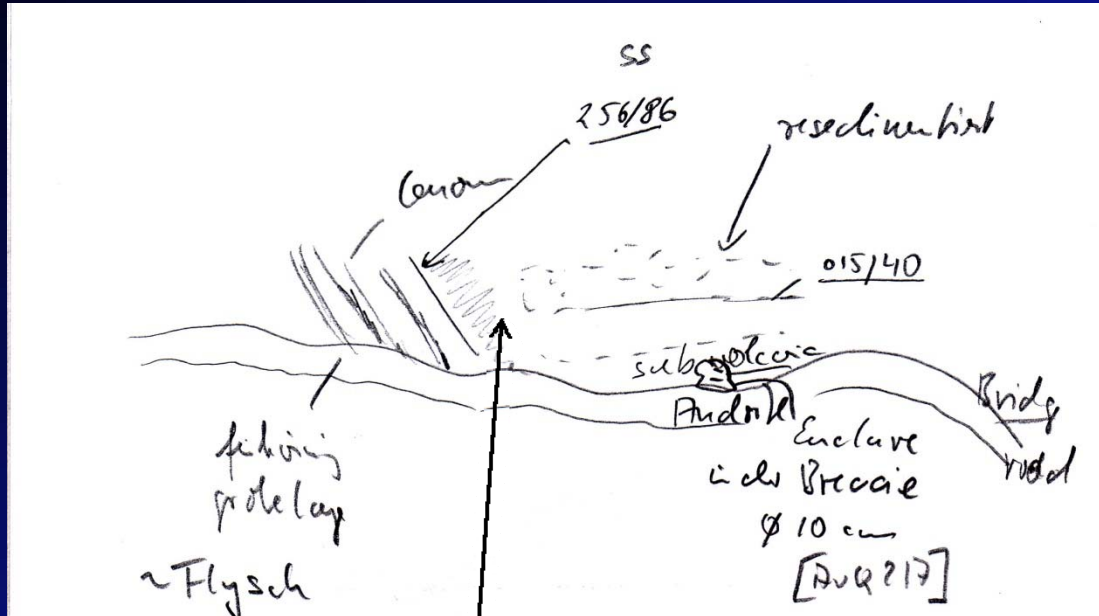 SS
256/86
resedimentiert
Cenom
015/40
subvolcanic
Andesit
Bridge
road
Enclave
in der Breccie
ø 10 cm
feinkörnig
~Flysch